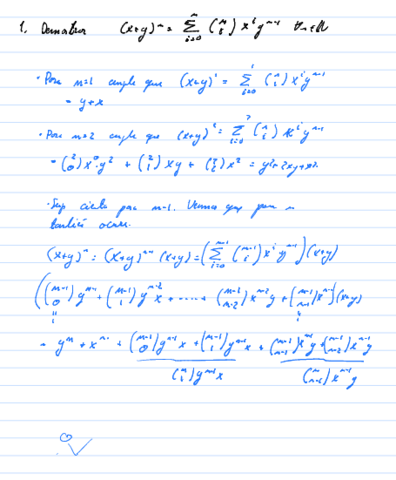 1. Demostrar (x+y)^n = \sum_{i=0}^{n} \binom{n}{i} x^i y^{n-i} \forall n \in \mathbb{N}
· Para n=1 cumple que (x+y)^1 = \sum_{i=0}^{1} \binom{n}{i} x^i y^{n-i}
= y+x
· Para n=2 cumple que (x+y)^2 = \sum_{i=0}^{2} \binom{n}{i} x^i y^{n-i}
= \binom{2}{0} x^0 y^2 + \binom{2}{1} xy + \binom{2}{2} x^2 = y^2+2xy+x^2
· Sup cierto para n-1. Veamos que para n
también ocurre.
(x+y)^n = (x+y)^{n-1} (x+y) = \left( \sum_{i=0}^{n-1} \binom{n-1}{i} x^i y^{n-1} \right) (x+y)
\left( \binom{n-1}{0} y^{n-1} + \binom{n-1}{1} y^{n-2} x + ..... + \binom{n-1}{n-2} x^{n-2} y + \binom{n-1}{n-1} x^{n-1} \right) (x+y)
= y^n + x^n + \binom{n-1}{0} y^{n-1} x + \binom{n-1}{1} y^{n-1} x + \binom{n-1}{n-1} x^{n-1} y + \binom{n-1}{n-2} x^{n-1} y
\binom{n}{1} y^{n-1} x \binom{n}{n-1} x^{n-1} y